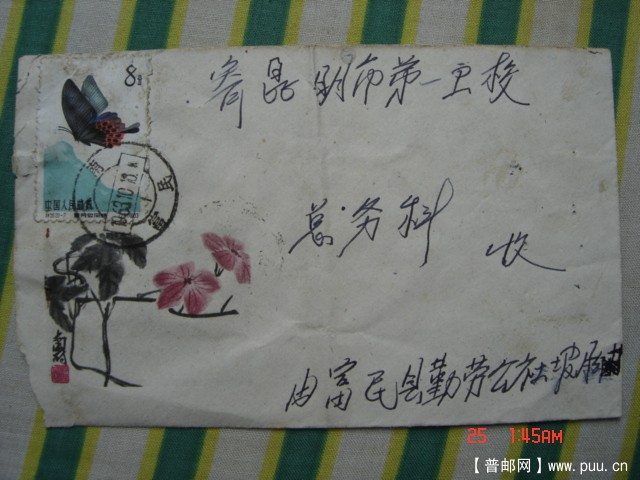 8分
中国人民邮政
寄昆明市第一卫校
总务科 收
由富民县勤劳公社坡
25 1:45AM
【普邮网】www.puu.cn